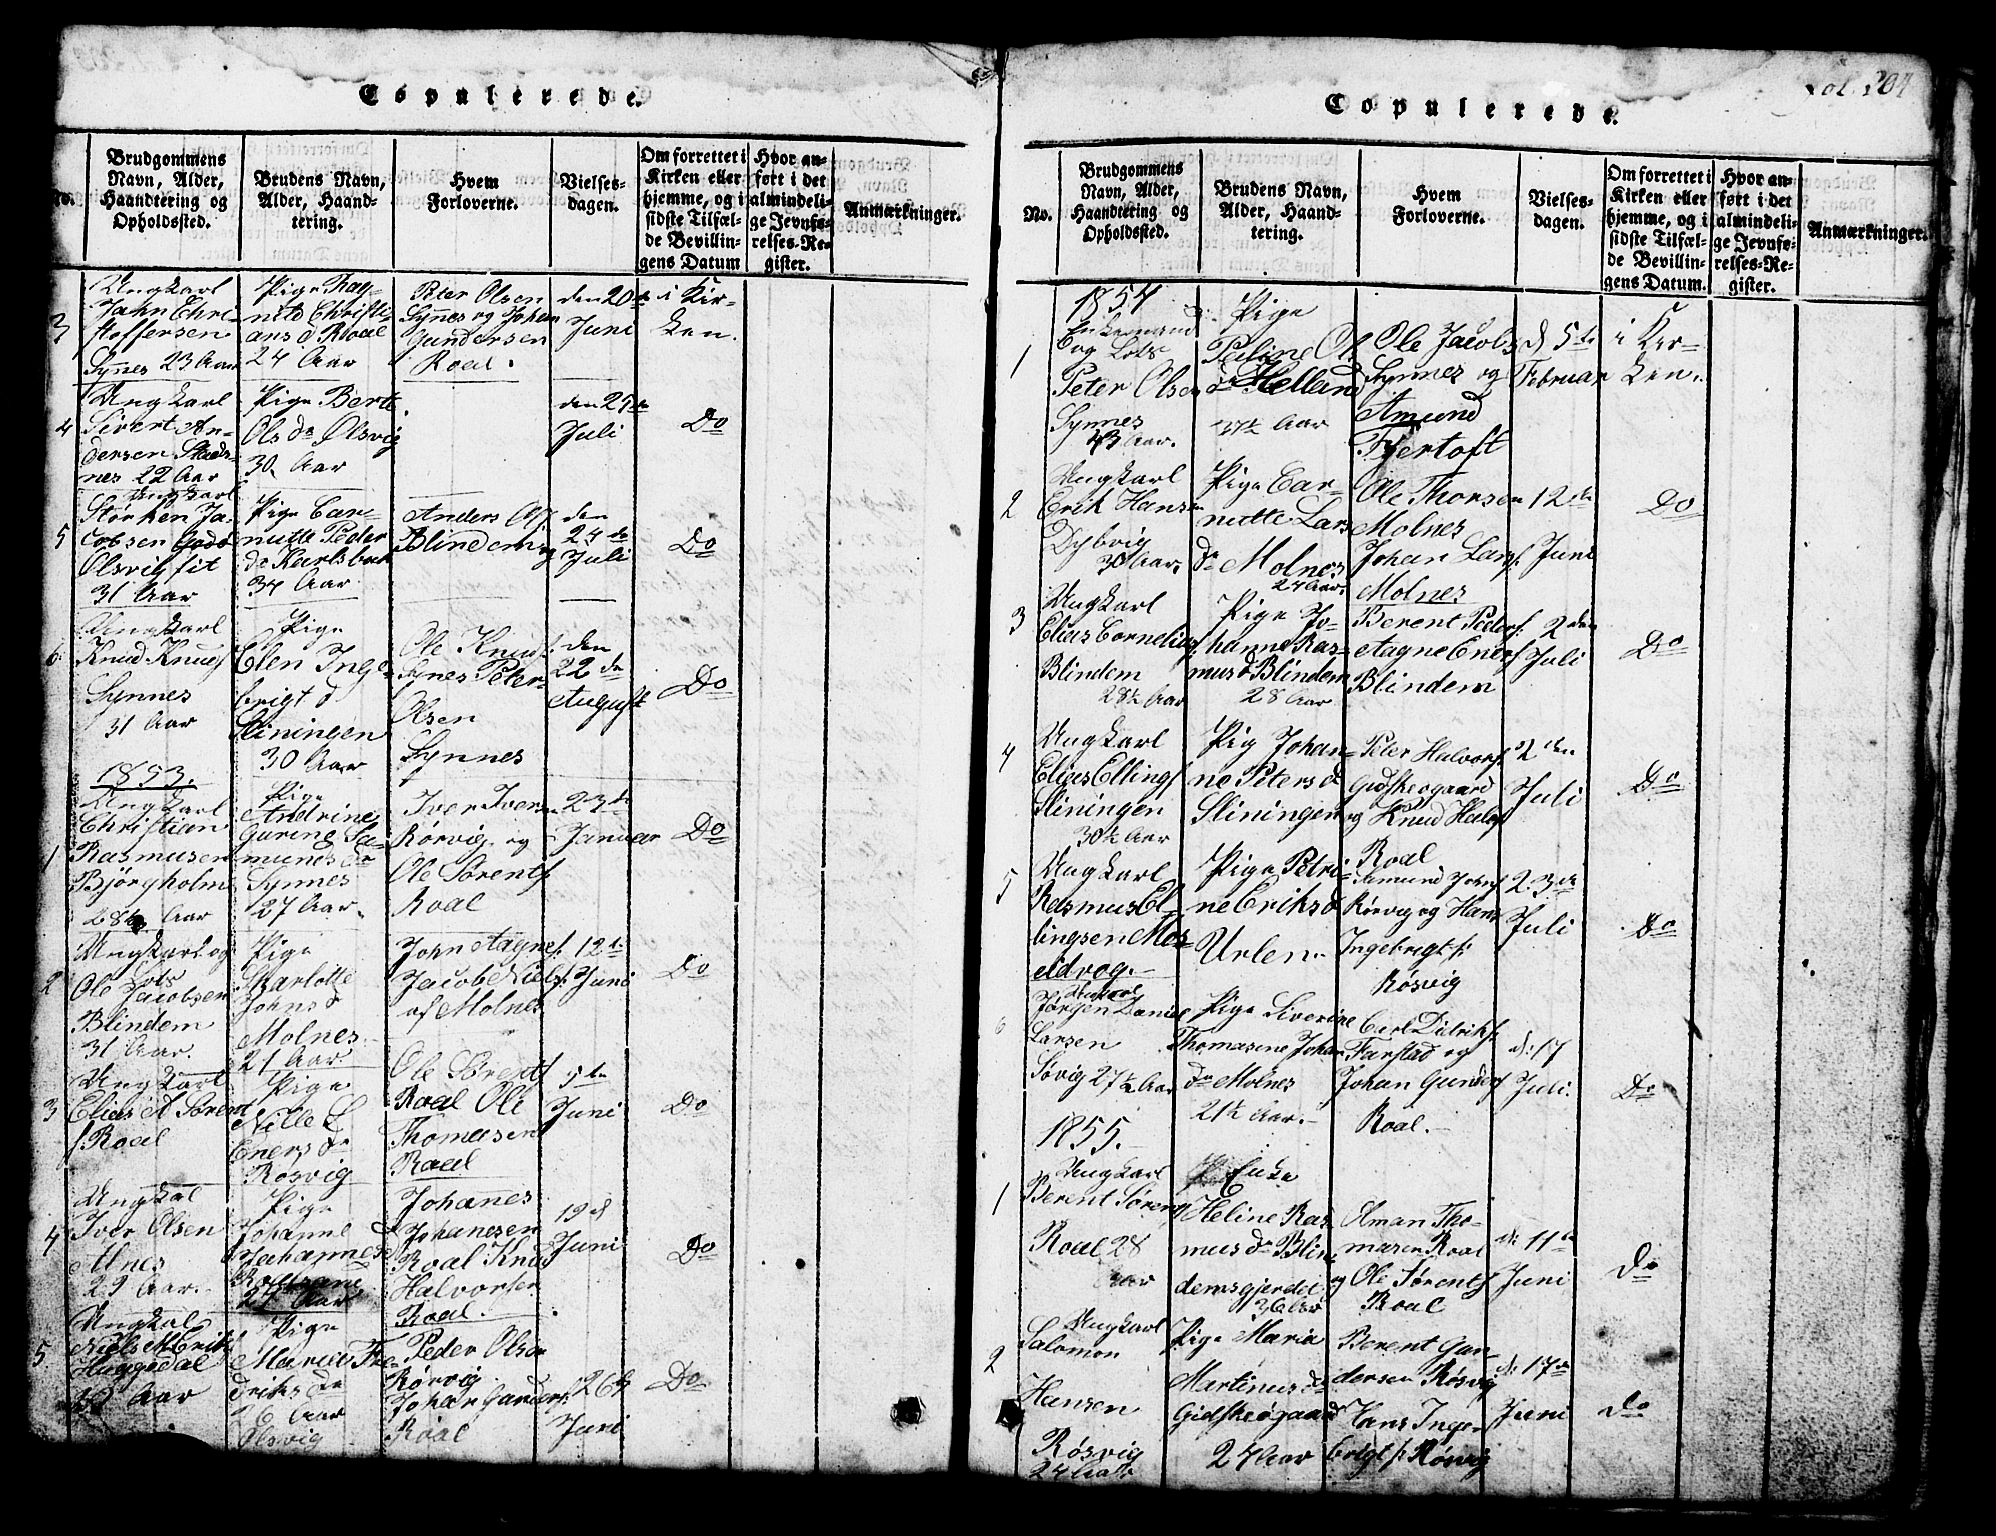 Copulerede.
No.
Brudgommens
Navn, Alder,
Haandtering og
Opholdssted.
Brudens Navn,
Alder, Haand-
tering.
Hvem
Forloverne.
Vielses-
dagen.
Om forrettet i
Kirken eller
hjemme, og i
sidste Tilfæl-
de Bevillin-
gens Datum
Hvor an-
ført i det
almindeli-
ge Jevnfø-
relses-Re-
gister.
Anmærkninger.
3
Ungkarl
Jahn Chri-
stoffersen
Synes 23 Aar
Pige Rag-
nild Christi-
ans d Roal
24 Aar
Peter Olsen
Synnes og Johan
Gundersen
Roal.
den 20de
Juni
i Kir-
ken.
4
Ungkarl
Sivert An-
dersen Stads-
nes 22 Aar
Pige Berte
Ols dr Olsvig
30 Aar
den 24de
Juli
Do
5
Ungkarl
Størken Ja-
cobsen Gods
Olsvigfit
31 Aar
Pige Can-
nutte Peder
dr Karlsbak
34 Aar
Anders Ols.
Blindem og
den
24de
Juli
Do
6
Ungkarl
Knud Knuds
Synnes
31 Aar
Pige
Elen Inge-
brigt d
Sliningen
30 Aar
Ole Knuds.
Synes Peter
Olsen
Synnes
den
22de
August
Do
1853.
1
Ungkarl
Christian
Rasmusen
Bjørgholm
28½ Aar
Pige
Andrine
Gurine Sa-
munds dr
Synnes
27 Aar.
Iver Ivers
Rørvig og
Ole Sørents.
Roal
23de
Januar
Do
2
Ungkarl og
Lods
Ole Jacobsen
Blindem
31 Aar.
Pige
Charlotte
Johns d
Molnes
21 Aar
John Aagnes.
Jacob Niels.
af Molnes
12te
Juni
Do
3
Ungkarl
Elias A Sørent
s. Roal
Pige
Nille E
Eners dr
Røsvig
Ole Sørents
Roal Ole
Thomasen
Roal
5te
Juni
Do
4
Ungkal
Iver Olsen
Alnes
29 Aar.
Pige
Johanne
Johannes d
24 Aar
Johanes
Johanesen
Roal Knud
Halvorsen
Roal.
19 d
Juni
Do
5
Ungkal
Niels M Eriks
Huggedal
Aar
Pige
Maria Fre-
driks dr
26 Aar
Olsvig
Peder Olsen
Rørvig
Johan Gunders.
Roal
26de
Juni
Do
Fol. 204
Copulerede.
No.
Brudgommens
Navn, Alder,
Haandtering og
Opholdssted.
Brudens Navn,
Alder, Haand-
tering.
Hvem
Forloverne.
Vielses-
dagen.
Om forrettet i
Kirken eller
hjemme, og i
sidste Tilfæl-
de Bevillin-
gens Datum.
Hvor an-
ført i det
almindeli-
ge Jevnfø-
relses-Re-
gister.
Anmærkninger.
1854
1
Enkemand
og Lods
Peter Olsen
Synnes
43 Aar.
Pige
Peline Ols
dr Helland
37½ Aar
Ole Jacobs
Synnes og
Amund
Fjertoft
d 5te
Februar
i Kir-
ken.
2
Ungkarl
Erik Hansen
Dybvig
30 Aar.
Pige Car-
nutte Lars
dr Molnes
24 Aar.
Ole Thorsen
Molnes
Johan Lars.
Molnes
12de
Juni
Do
3
Ungkarl
Elias Cornelius.
Blindem
28½ Aar
Pige Jo-
hanne Ras-
mus d Blindem
28 Aar
Berent Peders.
Aagne Eners.
Blindem
2den
Juli
Do
4
Ungkarl
Elias Ellings
Sliningen
30½ Aar
Pig Johan-
ne Peters d
Sliningen
Peter Halvors.
Gidskeøgaard
og Knud Halvs
Roal
2den
Juli
Do
5
Ungkarl
Rasmus El-
lingsen Mos-
eidvog.
Pige Petri-
ne Eriks d
Urlen.
Samund Johns
Rørvig og Hans
Ingebrigt s.
Røsvig
23de
Juli
Do
6
Ungkarl
Jørgen Daniel
Larsen
Søvig 27½ Aar
Pige Siverine
Thomasine Johan
dr Molnes
21½ Aar.
Carl Didriks.
Farstad og
Johan Gunders
Roal.
d: 17
Juli.
Do
1855.
1
Ungkarl
Berent Sørents
Roal 28
Aar
Enke
Heline Ras-
mus dr Blin-
demsgjerdet
36 Aar
Elman Tho-
masen Roal
og Ole Sørents.
Roal
d: 11te
Juni
Do
2
Ungkarl
Salomon
Hansen
Røsvig
24 Aar
Pige Maria
Martinus dr
Gidskeøgaard
24 Aar
Berent Gun-
dersen Røsvig
Hans Inge-
brigt s. Røsvig
d: 17de
Juni
Do